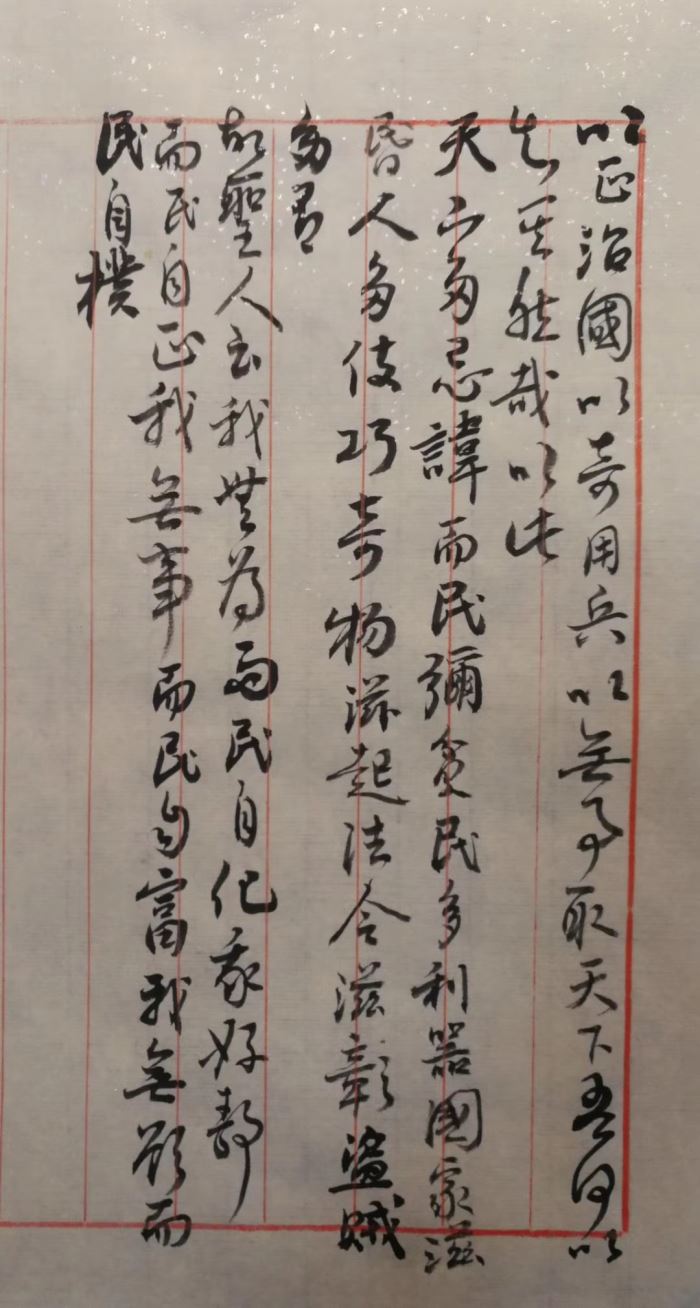 以正治國以奇用兵以無事取天下吾何以
知其然哉以此
天下多忌諱而民彌貧民多利器國家滋
昏人多伎巧奇物滋起法令滋彰盜賊
多有
故聖人云我無為而民自化我好靜
而民自正我無事而民自富我無欲而
民自樸